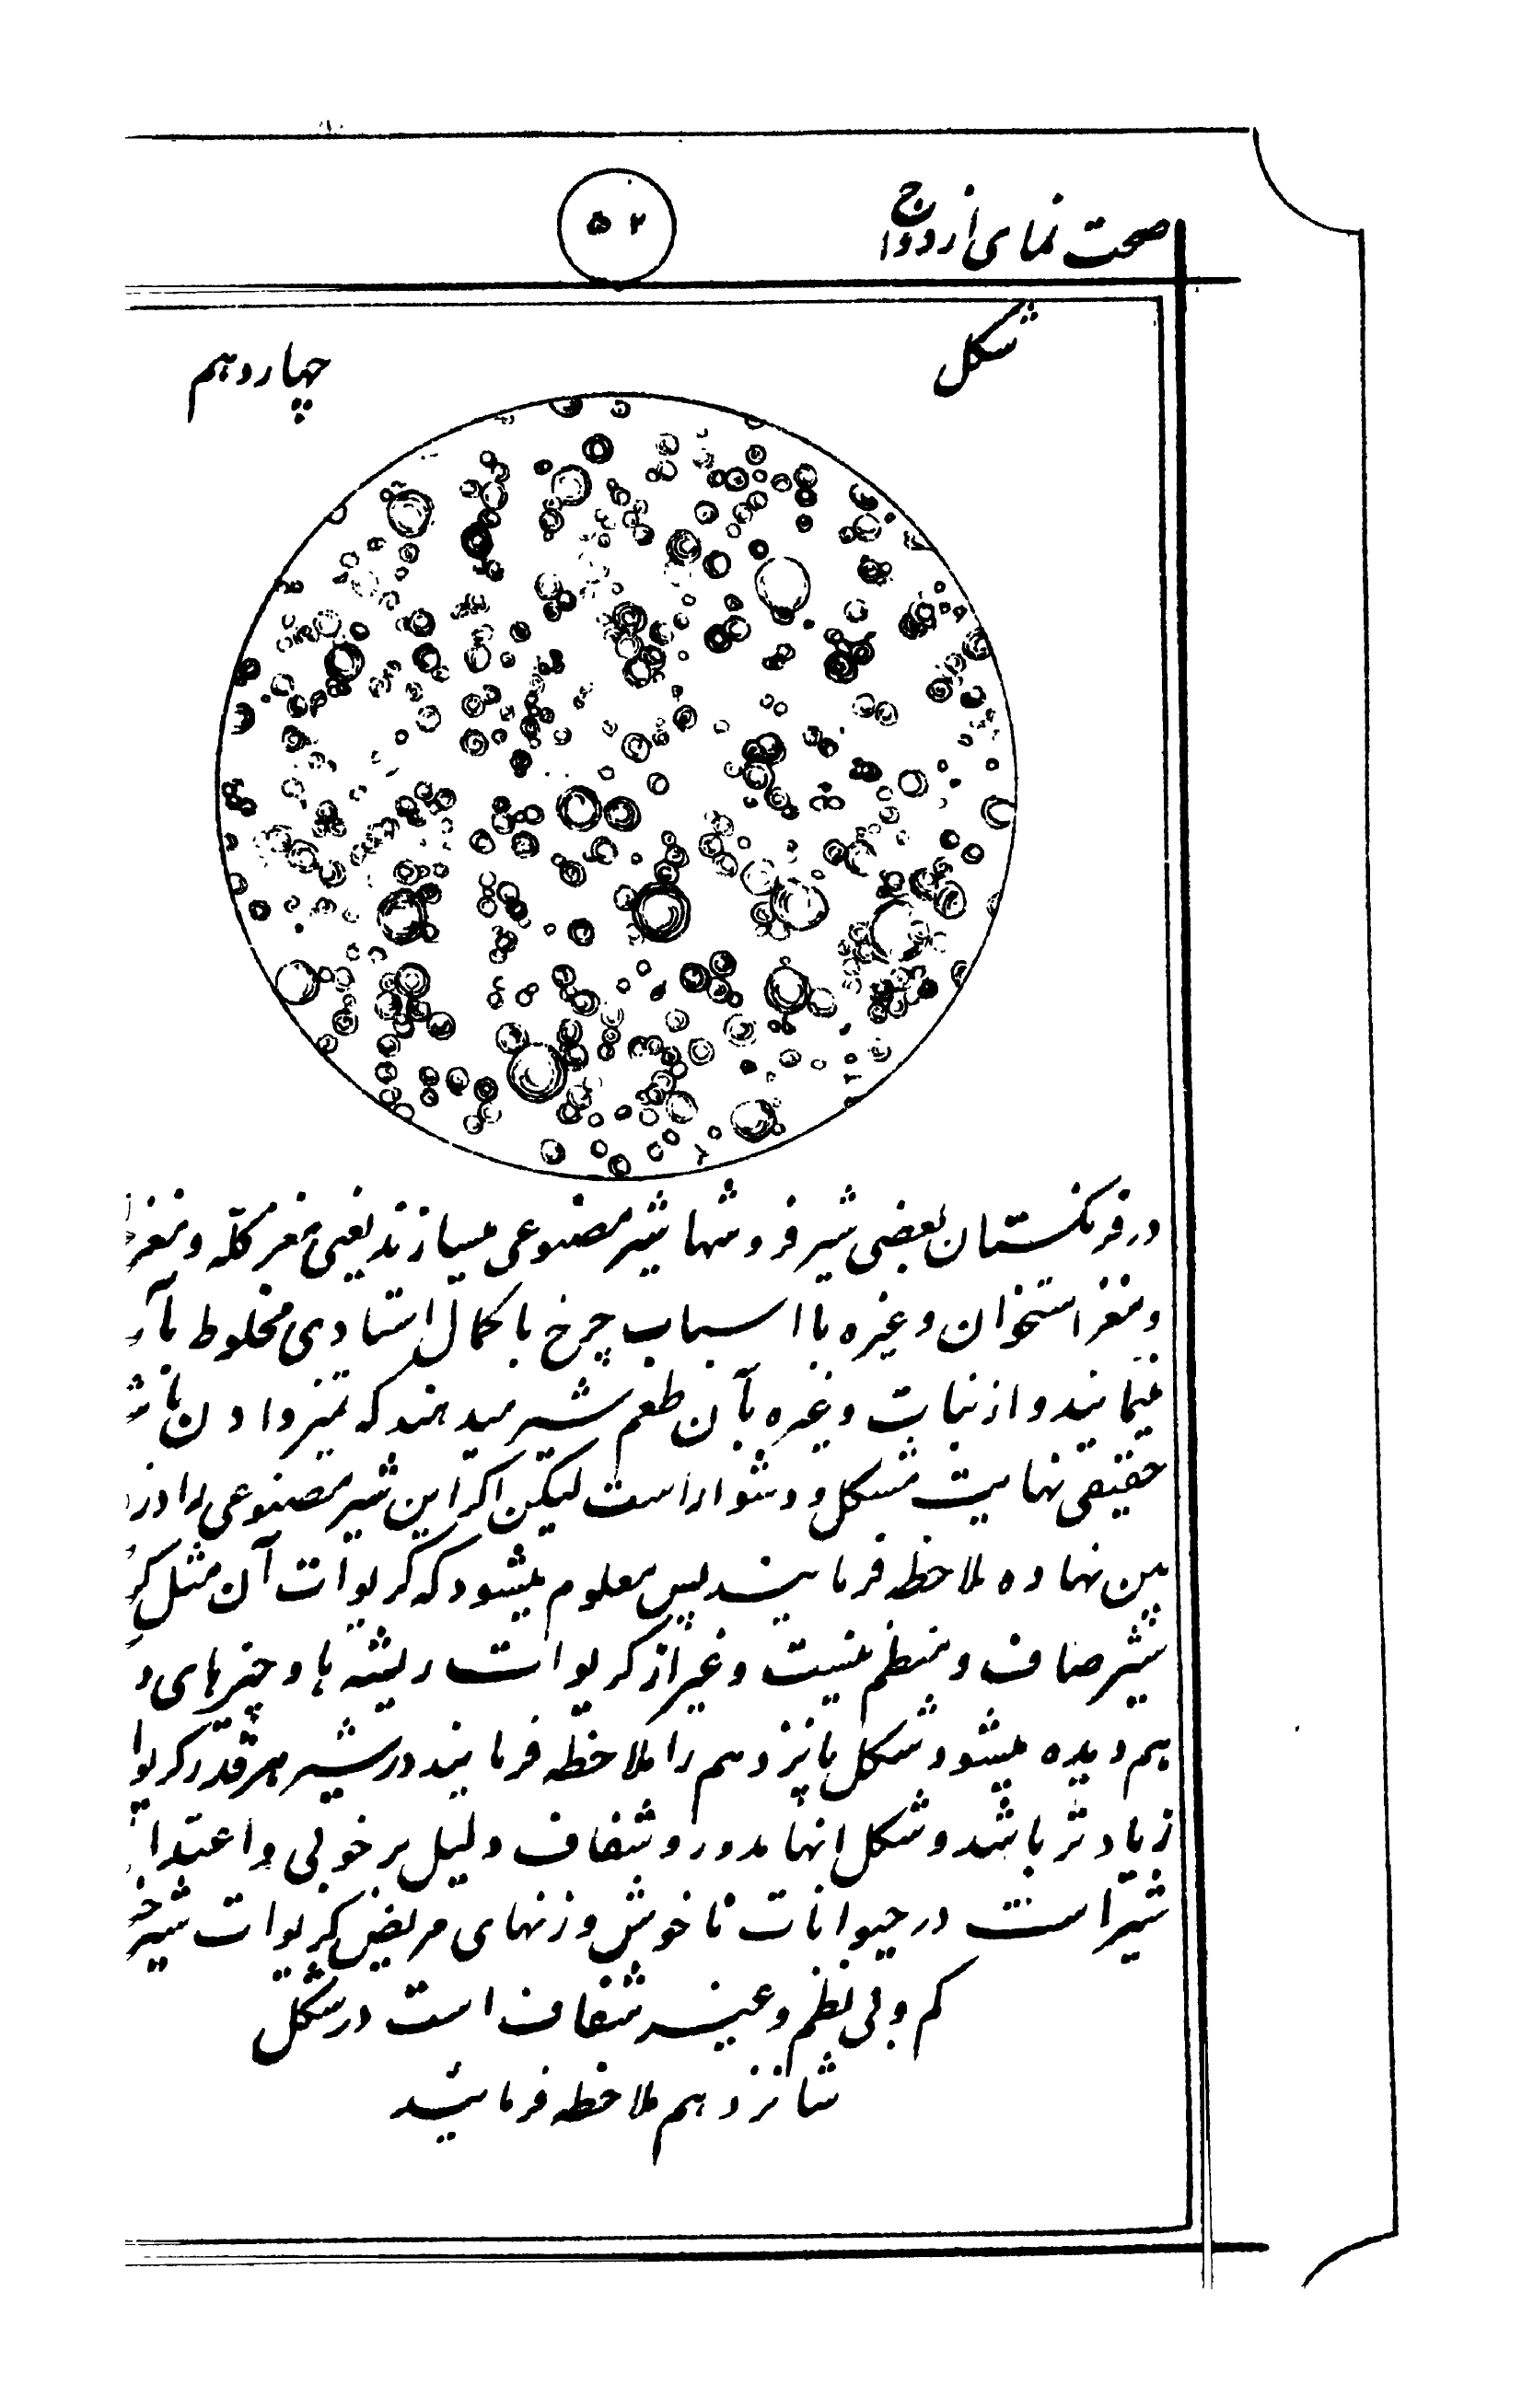 صحت نمای ازدواج
۵۲
شکل چهاردهم
در فرنکستان بعضی شیر فروشها شیر مصنوعی میسازند یعنی مغز کلّه و مغز
و مغز استخوان و غیره با اسباب چرخ با کمال استادی مخلوط بآ
مینمایند و از نبات و غیره بآن طعم شیر میدهند که تمیز دادن با
حقیقی نهایت مشکل و دشوار است لیکن اکر این شیر مصنوعی را در
بین نهاده ملاحظه فرمایند پس معلوم میشود که کریوات آن مثل
شیر صاف و منظم نیست و غیر از کریوات ریشه ها و چیزهای
هم دیده میشود شکل پانزدهم را ملاحظه فرمایند در شیر هر قدر کریوا
زیادتر باشد و شکل انها مدور و شفاف دلیل بر خوبی و اعتدا
شیر است در حیوانات ناخوش و زنهای مریض کریوات شیر
کم و بی نظم و غیر شفاف است در شکل
شانزدهم ملاحظه فرمایند